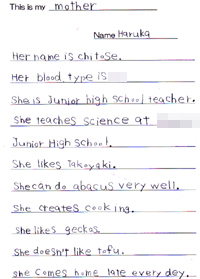 This is my mother
Name Haruka
Her name is chitose.
Her blood type is
She is Junior high school teacher.
She teaches science at
Junior High School.
She likes Takoyaki.
She can do abacus very well.
She creates cooking.
she likes geckos.
She doesn't like tofu.
she comes home late every dey.